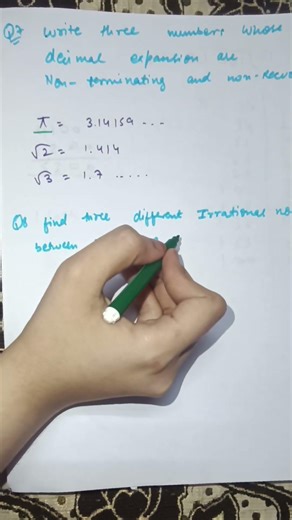 Q7 Write three numbers whose
decimal expansion are
Non-terminating and non-
π = 3.14159 ...
√2 = 1.414
√3 = 1.7 .....
Q8 find three different Irrational no
between